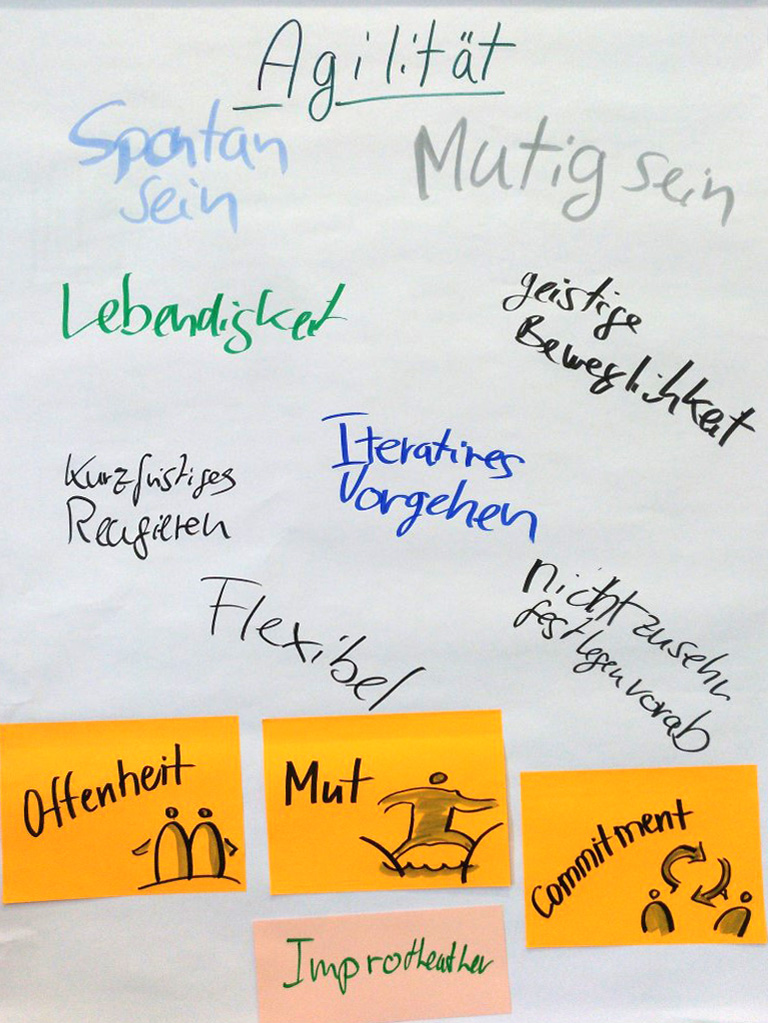 Agilität
Spontan
sein
Mutig sein
Lebendigkeit
geistige
Beweglichkeit
Iteratives
Vorgehen
Kurzfristiges
Reagieren
Flexibel
nicht zu sehr
festlegen vorab
Offenheit
Mut
Commitment
Improtheather